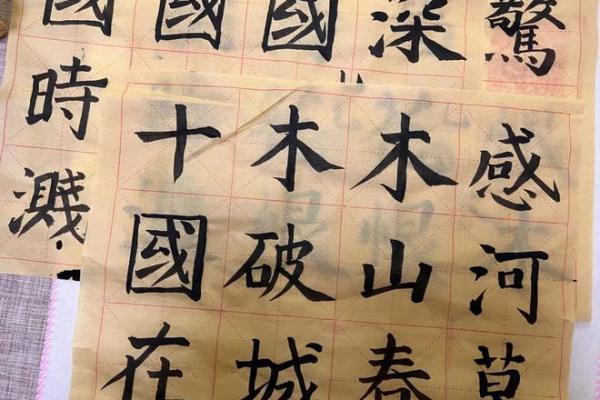 國國國深驚
時
濺
十木木感
國破山河
在城春草